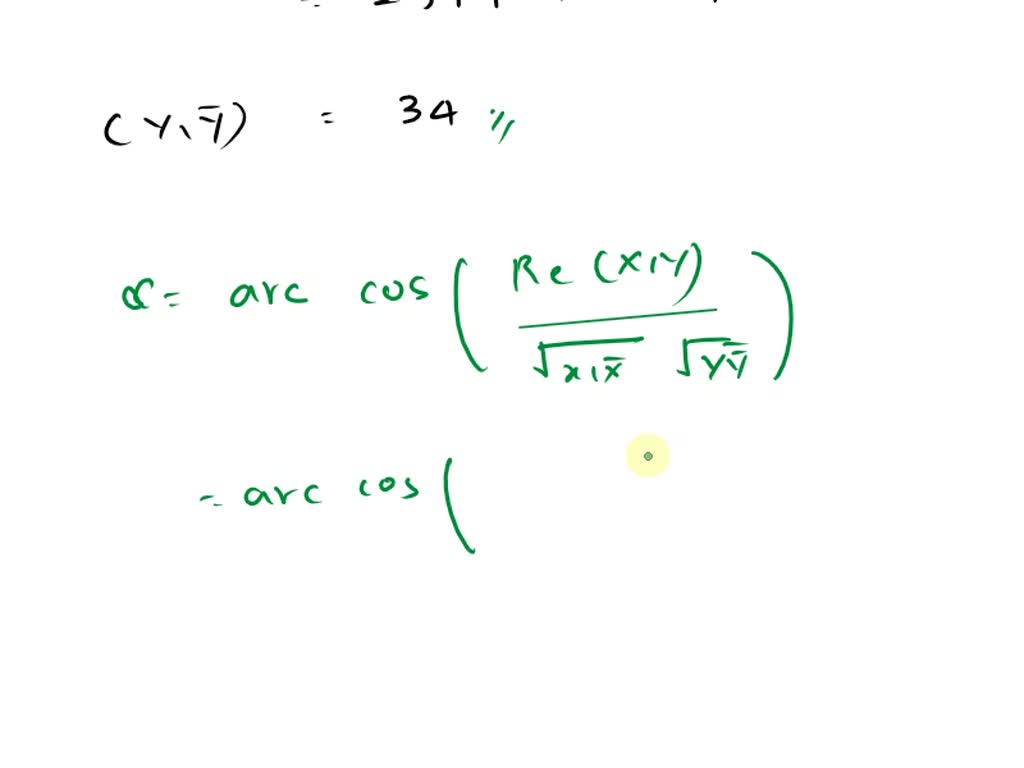 (Y, Ȳ) = 34 //
α = arc cos ( Re (X,Y) / √x,x̄ √YȲ )
= arc cos (